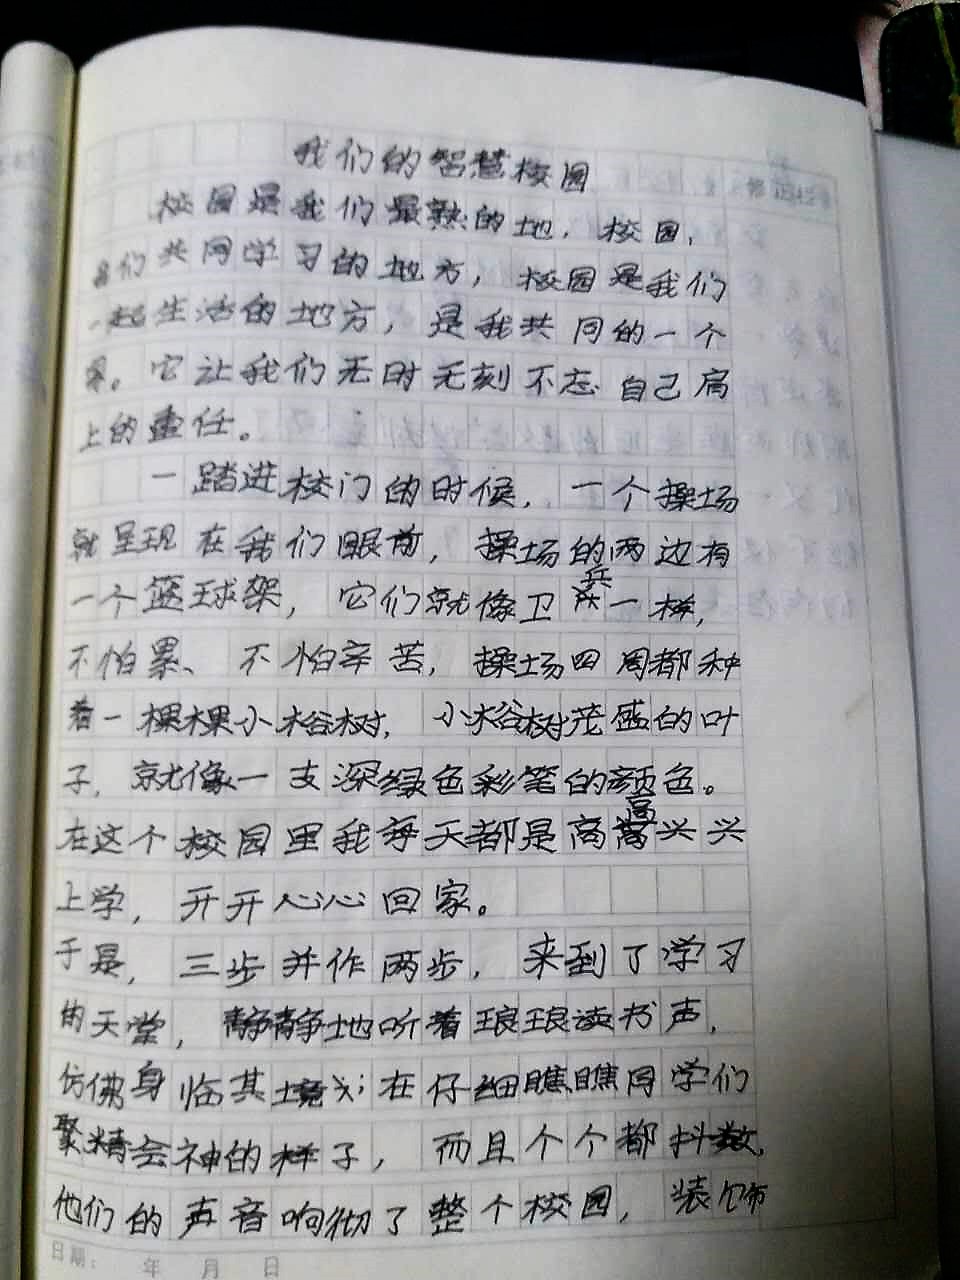 我们的智慧校园
校园是我们最熟的地，校园，
们共同学习的地方，校园是我们
一起生活的地方，是我共同的一个
家。它让我们无时无刻不忘自己肩
上的重任。
一踏进校门的时候，一个操场
就呈现在我们眼前，操场的两边有
一个篮球架，它们就像卫兵一样，
不怕累、不怕辛苦，操场四周都种
着一棵棵小榕树，小榕树茂盛的叶
子，就像一支深绿色彩笔的颜色。
在这个校园里我每天都是高高兴兴
上学，开开心心回家。
于是，三步并作两步，来到了学习
的天堂，静静地听着琅琅读书声，
仿佛身临其境；在仔细瞧瞧同学们
聚精会神的样子，而且个个都抖数，
他们的声音响彻了整个校园，装饰
日期： 年 月 日